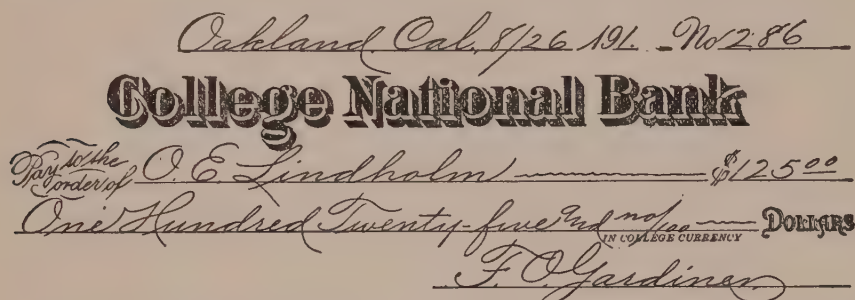 Oakland, Cal. 8/26 191. No 286
College National Bank
Pay to the order of O. E. Lindholm $125 00
One Hundred Twenty-five and no/100 Dollars
IN COLLEGE CURRENCY
F. O. Gardiner